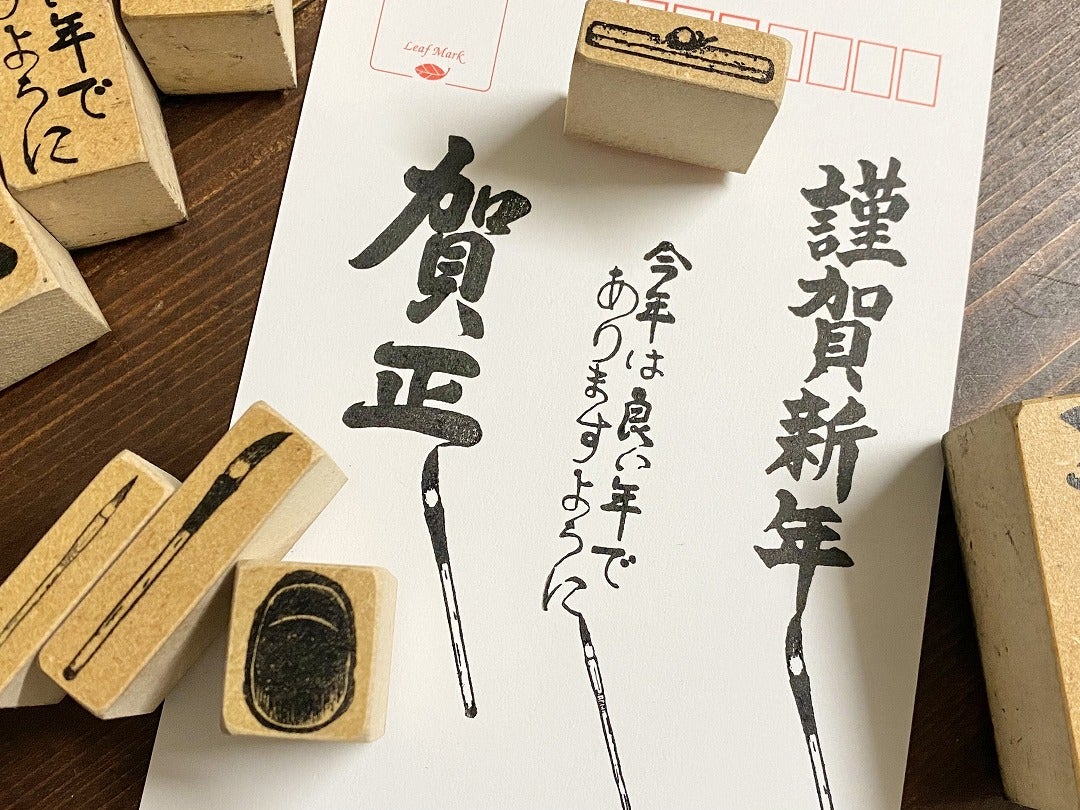 Leaf Mark
謹賀新年
今年は良い年で
ありますように
賀正
年で
ように